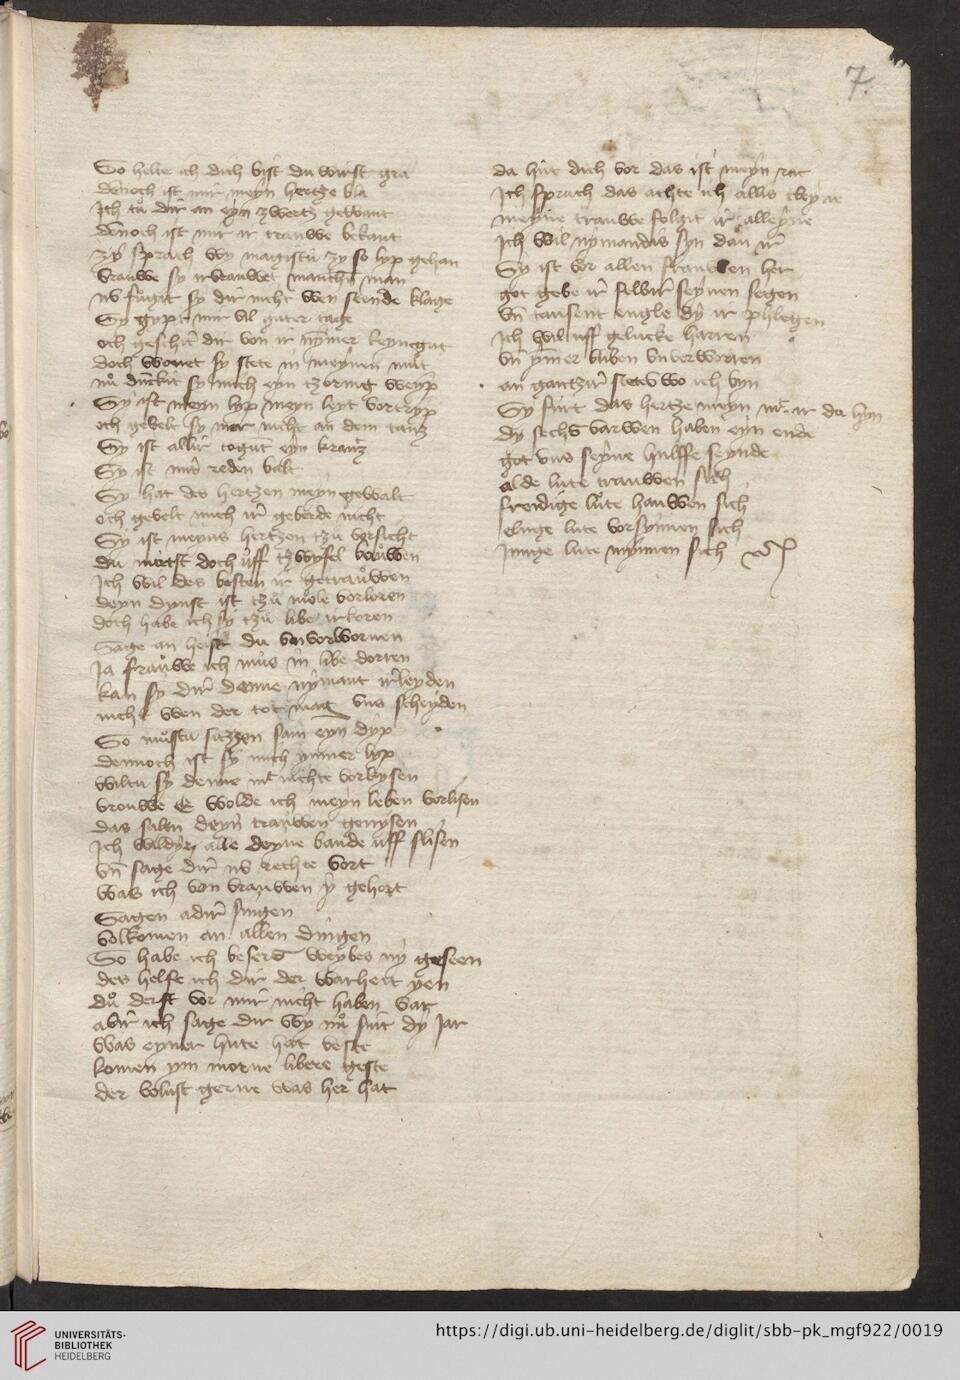 7.
So helte ich dich bist du wirst gra
dennoch ist mir meyn hertze bla
Ich tu dir an eyn zwertz gewant
dennoch ist mir ir trauwe bekant
zy sprach wy magistu zy so lyp gehan
vrauwe sy irvrauwet manchen man
nv fugit sy dir nicht wen seende klage
Sy gypt mir vil guter tage
och geschit dir von ir nymer keyn gut
doch wonet sy stete in meynen mut
nu dunckit sy mich eyn tzornig weyp
Sy ist meyn lyp meyn leyt vortryp
och gevelt sy mir nicht an dem tantz
Sy ist allir togunt eyn krantz
Sy ist mir reden balt
Sy hat des hertzen meyn gewalt
och gevelt mich ir geberde nicht
Sy ist meyns hertzen tzu vorsicht
du mirtst doch uff tzwyfel bauwen
Ich wil des besten ir getrauwen
deyn dynst ist tzu mole vorloren
doch habe ich sy tzu libe irkoren
Sage an heist du vnvorwornen
Ja frauwe ich mus in libe dorren
kan sy dir denne nymant irleyden
nicht wen der tot mag vns scheyden
So mustu sitzzen sam eyn dyp
dennoch ist sy mich ymmer lyp
wiltu sy denne mit nichte vorkysen
vrouwe E wolde ich meyn leben vorlisen
das salen deyn trauwen genysen
Ich wil dyr alle deyne bande uff slisen
vnd sage dir nv rechte wort
was ich von vrauwen y gehort
Sagen adir singen
volkomen an allen dingen
So habe ich besers weybes ny geseen
des helfe ich dir der warheit yen
du derft vor mir nicht haben var
abir ich sage dir wy nu sint dy Jar
was eyner hute hat veste
komen ym morne libere geste
der volust gerne was her hat
da hut dich vor das ist meyn rat
Ich sprach das achte ich allis cleyne
meyne trauwe folgit ir alleyne
Ich wil nymandis syn dan ir
Sy ist vor allen frauwen her
got gebe ir selbir seynen segen
vnd tausent engle dy ir phlegen
Ich wil uff gelucke harren
vnd ymer bliben vnverworren
an gantzir stete wo ich byn
Sy furt das hertze meyn mit ir da hyn
dy sechs varwen haben eyn ende
got vns seyne hulffe seynde
alde lute trauwen sich
freidige lute hauwen sich
cluge lute vorsynnen sich
Junge lute mynnen sich
UNIVERSITÄTS-
BIBLIOTHEK
HEIDELBERG
https://digi.ub.uni-heidelberg.de/diglit/sbb-pk_mgf922/0019